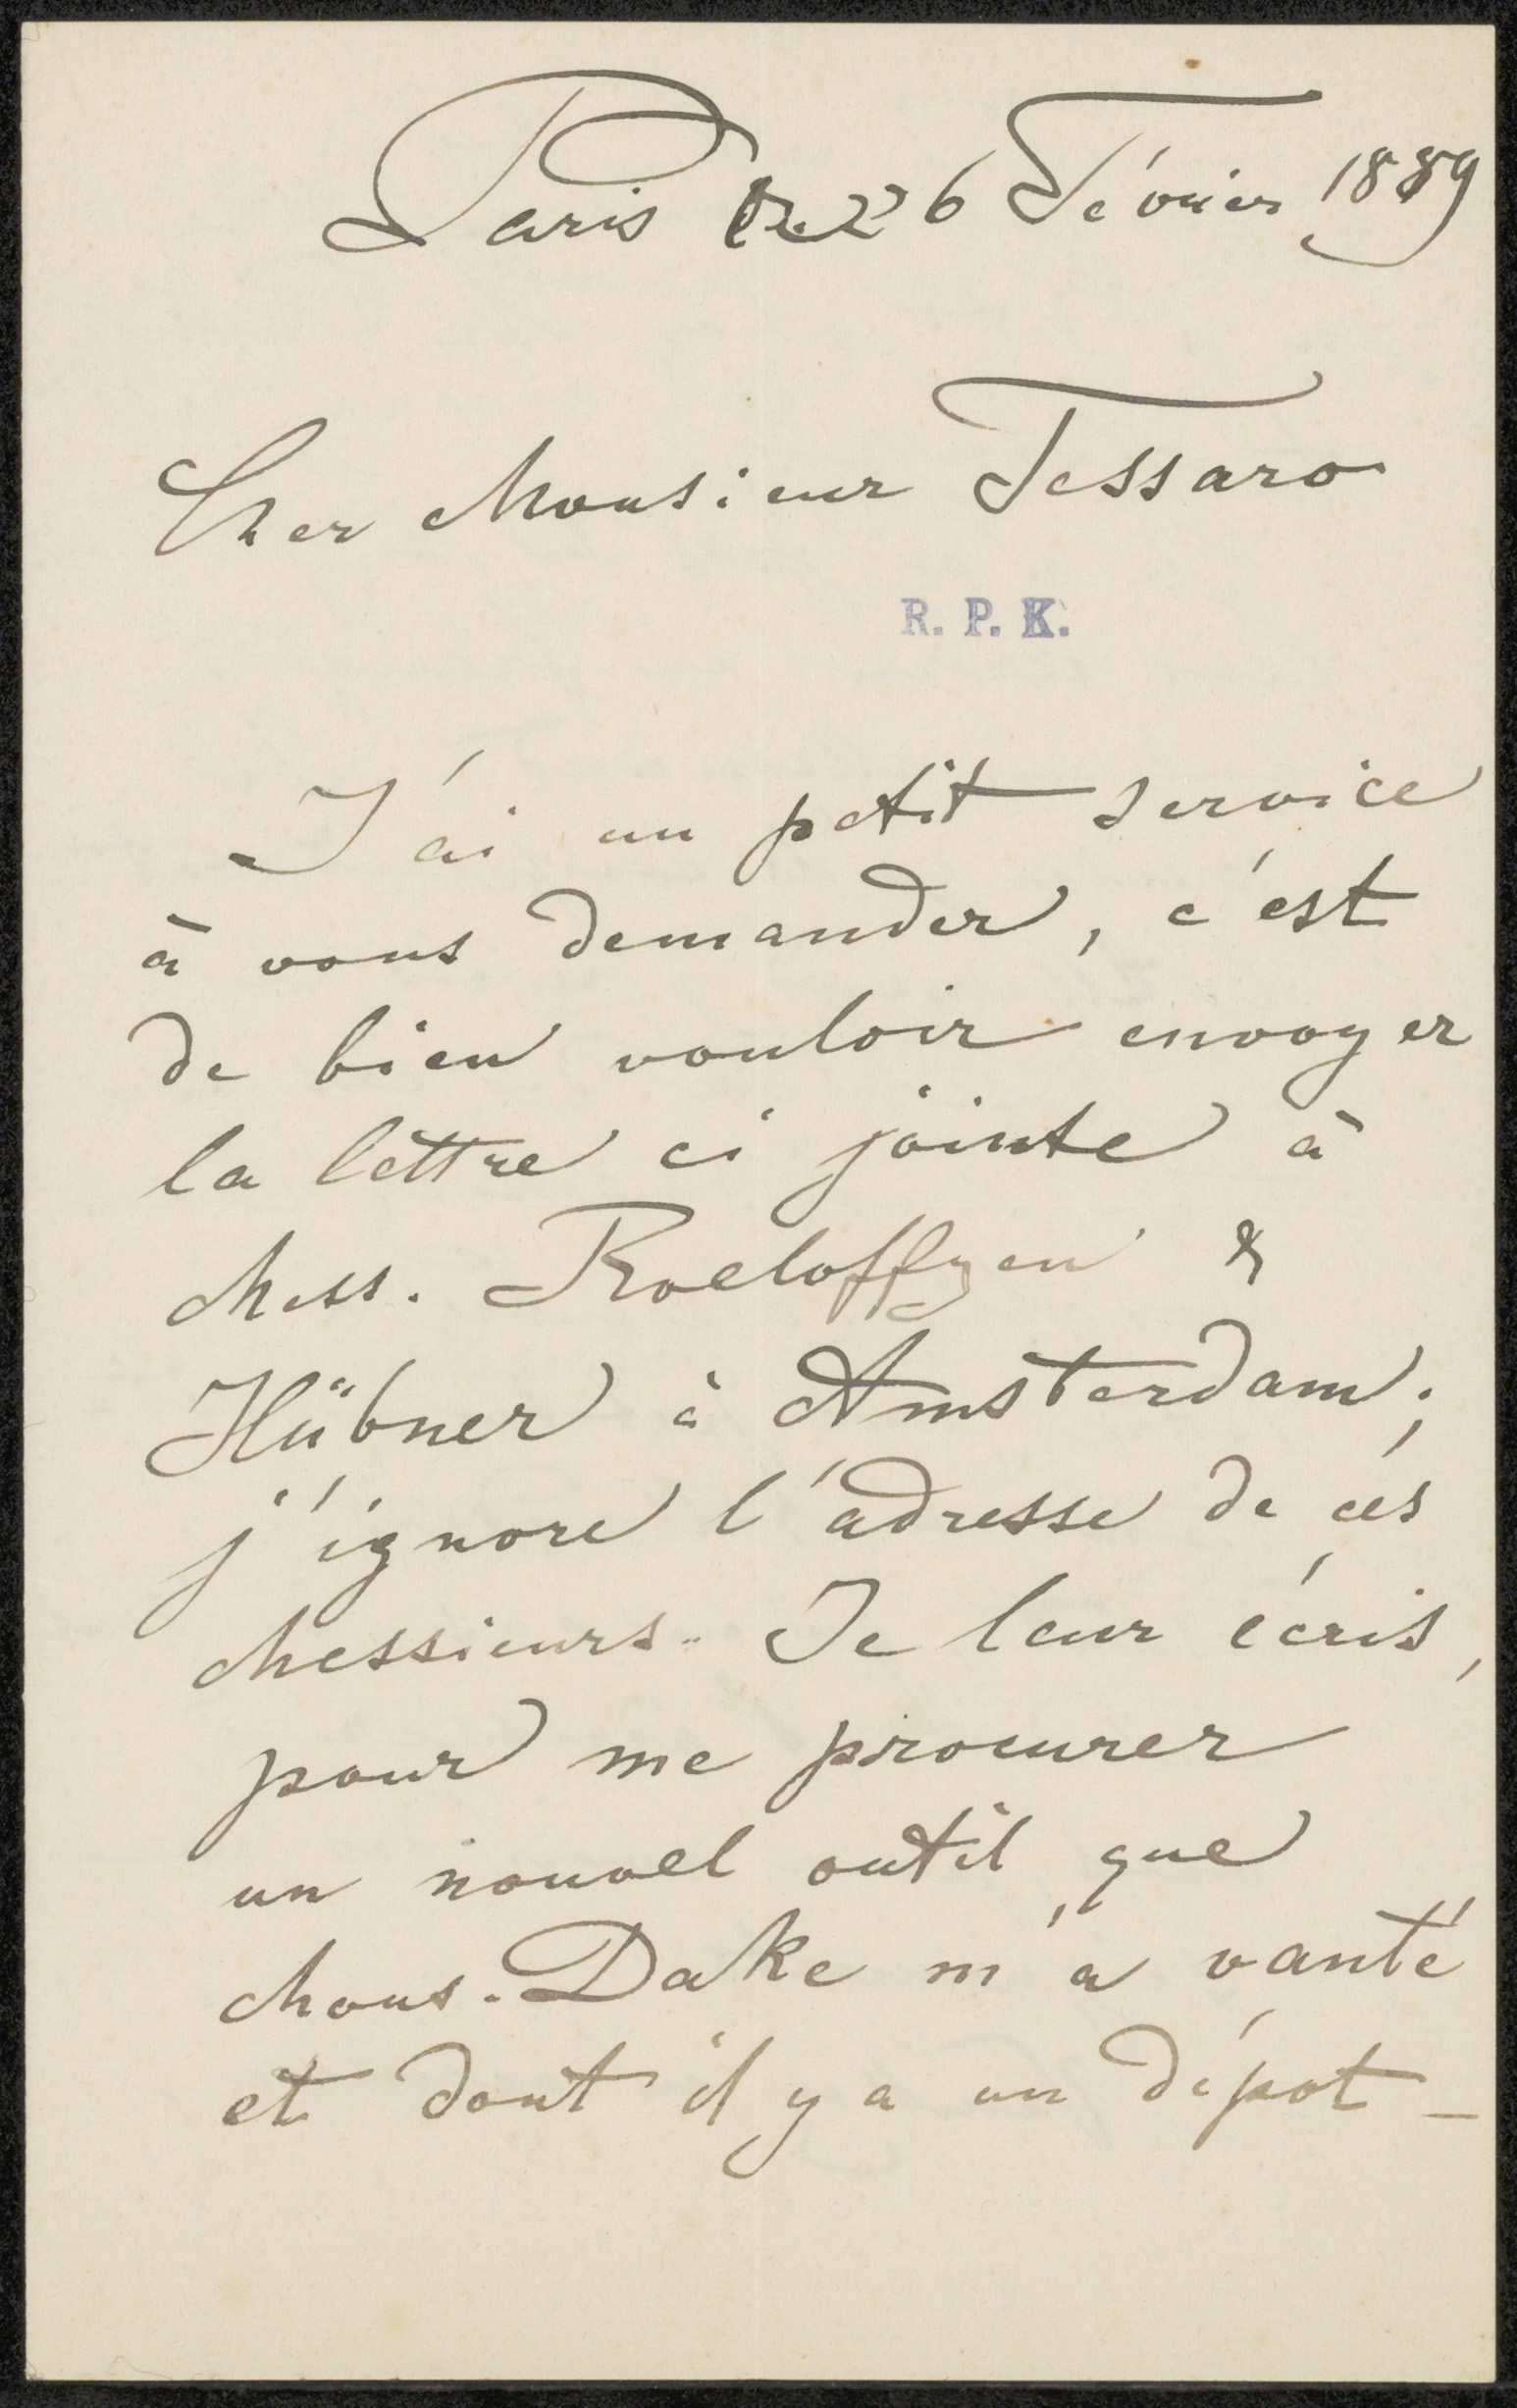 Paris le 26 Février 1889
Cher Monsieur Tessaro
R. P. K.
J'ai un petit service
à vous demander, c'est
de bien vouloir envoyer
la lettre ci jointe à
Mess. Roeloffzen &
Hübner à Amsterdam;
j'ignore l'adresse de ces
Messieurs. Je leur écris,
pour me procurer
un nouvel outil, que
Mons. Dake m'a vanté
et dont il y a un dépot –